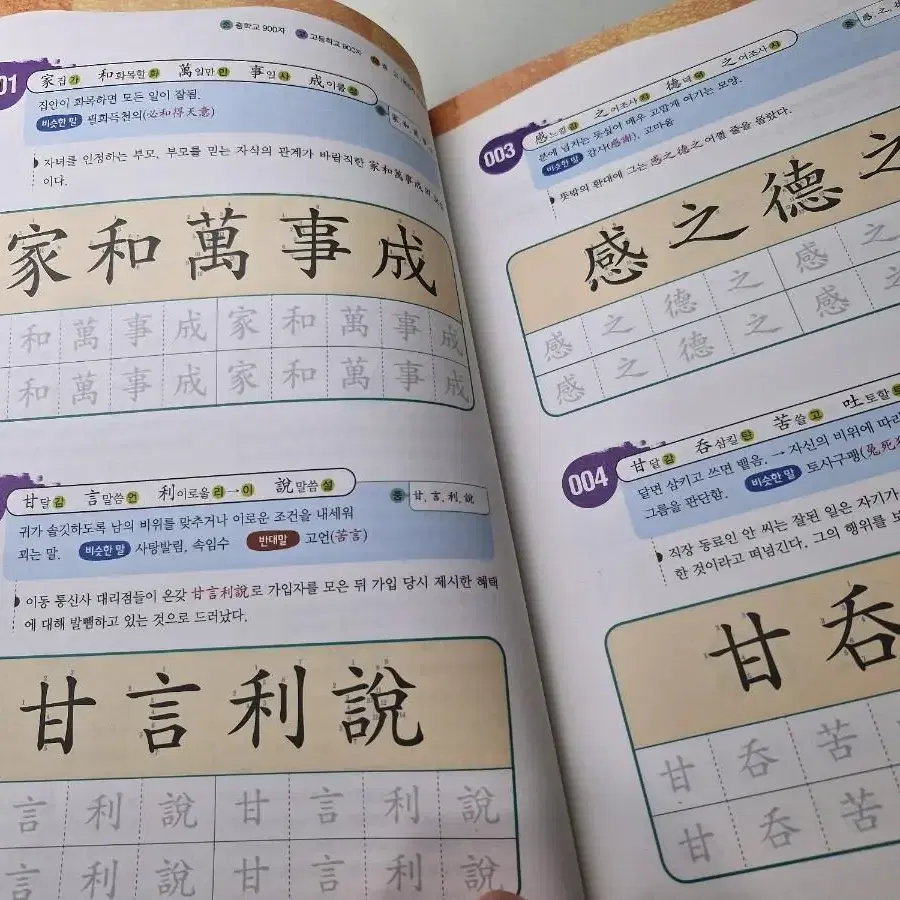 중 중학교 900자 고 고등학교 900자
01
家 집 가 和 화목할 화 萬 일만 만 事 일 사 成 이룰 성
집안이 화목하면 모든 일이 잘됨.
비슷한 말 필화득천의(必和得天意)
자녀를 인정하는 부모, 부모를 믿는 자식의 관계가 바람직한 家和萬事成의
이다.
家 和 萬 事 成
和 萬 事 成 家 和 萬 事 成
和 萬 事 成 家 和 萬 事 成
甘 달 감 言 말씀 언 利 이로울 리→이 說 말씀 설
중 甘, 言, 利, 說
귀가 솔깃하도록 남의 비위를 맞추거나 이로운 조건을 내세워
꾀는 말. 비슷한 말 사탕발림, 속임수 반대말 고언(苦言)
이동 통신사 대리점들이 온갖 甘言利說로 가입자를 모은 뒤 가입 당시 제시한 혜택
에 대해 발뺌하고 있는 것으로 드러났다.
甘 言 利 說
言 利 說 甘 言 利 說
言 利 說 甘 言 利 說
003
感 느낄 감 之 어조사 지 德 덕 덕 之 어조사 지
중 感, 之,
분에 넘치는 듯싶어 매우 고맙게 여기는 모양.
비슷한 말 감사(感謝), 고마움
뜻밖의 환대에 그는 感之德之 어쩔 줄을 몰랐다.
感 之 德 之
感 之 德 之 感 之
感 之 德 之 感 之
004
甘 달 감 呑 삼킬 탄 苦 쓸 고 吐 토할 토
달면 삼키고 쓰면 뱉음. → 자신의 비위에 따라
그름을 판단함. 비슷한 말 토사구팽(兔死
직장 동료인 안 씨는 잘된 일은 자기가
한 것이라고 떠넘긴다. 그의 행위를 보
甘 呑
甘 呑 苦
甘 呑 苦